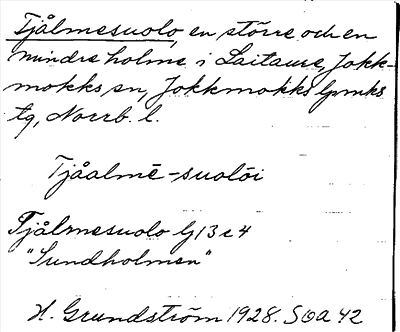 Tjålmesuolo, en större och en
mindre holme i Laitaure, Jokk-
mokks sn, Jokkmokks lpmks
tg, Norrb. l.
Tjåalmē-suolōi
Tjålmesuolo lj 13 e 4
"Sundholmen"
H. Grundström 1928. SOA 42